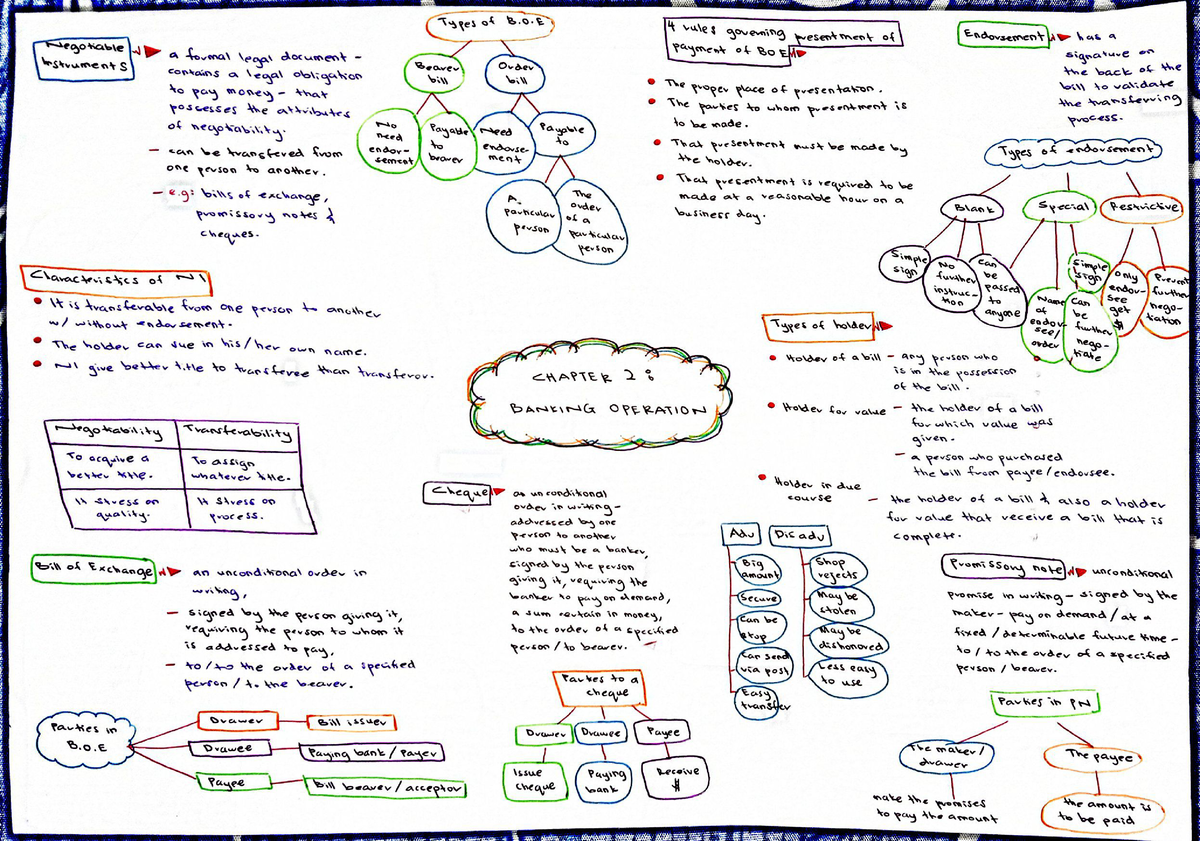 Negotiable
Instruments
a formal legal document -
contains a legal obligation
to pay money - that
possesses the attributes
of negotiability.
- can be transfered from
one person to another.
- e.g: bills of exchange,
promissory notes &
cheques.
Types of B.O.E
Bearer
bill
Order
bill
No
need
endor-
sement
Payable
to
braver
Need
endorse-
ment
Payable
to
A
particular
person
The
order
of a
particular
person
4 rules governing presentment of
payment of BOE
• The proper place of presentation.
• The parties to whom presentment is
to be made.
• That presentment must be made by
the holder.
• That presentment is required to be
made at a reasonable hour on a
business day.
Endorsement
has a
signature on
the back of the
bill to validate
the transferring
process.
Types of endorsement
Blank
Special
Restrictive
Simple
sign
No
further
instruc-
tion
Can
be
passed
to
anyone
Name
of
endor-
see/
order
Simple
sign
Can
be
further
nego-
tiate
Only
endor-
see
get
$
Prevent
further
nego-
tiation
Characteristics of NI
• It is transferable from one person to another
w/ without endorsement.
• The holder can sue in his/her own name.
• NI give better title to transferee than transferor.
CHAPTER 2 :
BANKING OPERATION
Types of holder
• Holder of a bill - any person who
is in the possession
of the bill.
• Holder for value - the holder of a bill
for which value was
given.
- a person who purchased
the bill from payee/endorsee.
• Holder in due
course
- the holder of a bill & also a holder
for value that receive a bill that is
complete.
Negotiability Transferability
To acquire a
better title.
To assign
whatever title.
It stress on
quality.
It stress on
process.
Cheque
an unconditional
order in writing -
addressed by one
person to another
who must be a banker,
signed by the person
giving it, requiring the
banker to pay on demand,
a sum certain in money,
to the order of a specified
person / to bearer.
Adv
Disadv
Big
amount
Secure
Can be
stop
Can send
via post
Easy
transfer
Shop
rejects
May be
stolen
May be
dishonored
Less easy
to use
Bill of Exchange
an unconditional order in
writing,
- signed by the person giving it,
requiring the person to whom it
is addressed to pay,
- to/to the order of a specified
person / to the bearer.
Promissory note
unconditional
promise in writing - signed by the
maker - pay on demand / at a
fixed / determinable future time -
to / to the order of a specified
person / bearer.
Parties in
B.O.E
Drawer
Bill issuer
Drawee
Paying bank / Payer
Payee
Bill bearer / acceptor
Parties to a
cheque
Drawer
Drawee
Payee
Issue
cheque
Paying
bank
Receive
$
Parties in PN
The maker /
drawer
The payee
make the promises
to pay the amount
the amount is
to be paid